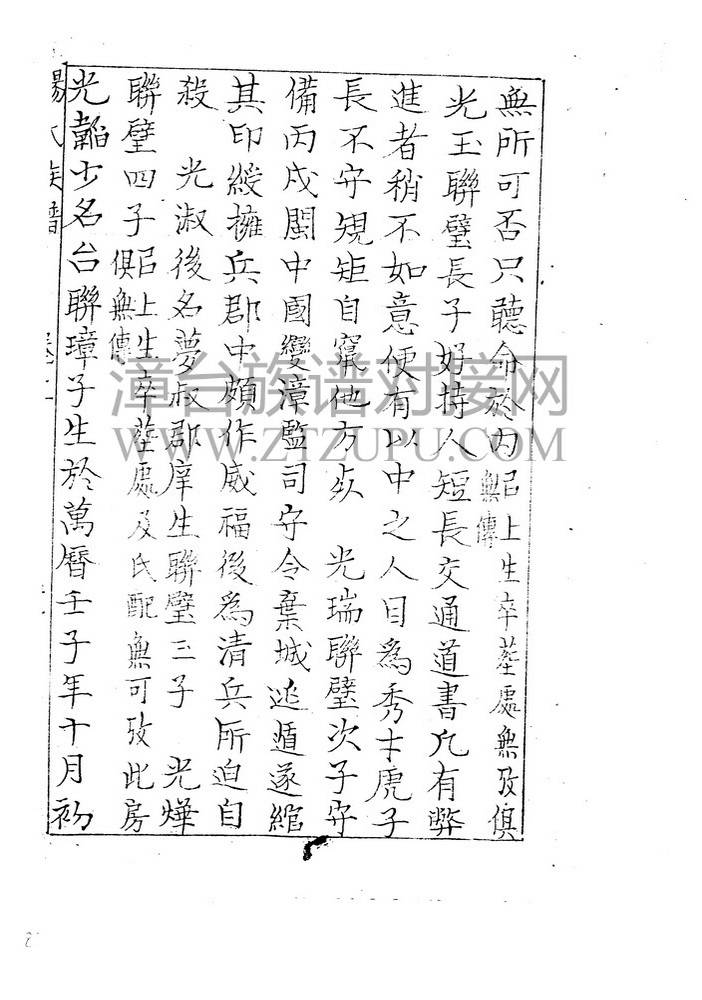 無所可否只聽命於内㠯上生卒塟處無攷俱無傳
光玉聯璧長子好持人短長交通道書凡有弊
進者稍不如意便有以中之人目為秀才虎子
長不守規矩自竄他方矣　光瑞聯璧次子守
備丙戌閩中國變漳監司守令棄城逃遁遂綰
其印綬擁兵郡中頗作威福後為清兵所迫自
殺　光淑後名夢叔郡庠生聯璧三子　光燁
聯璧四子㠯上生卒塟處及氏配無可攷此房俱無傳
光韜少名台聯璋子生於萬曆壬子年十月初
楊氏族譜　卷二
漳台族谱对接网
WWW.ZTZUPU.COM